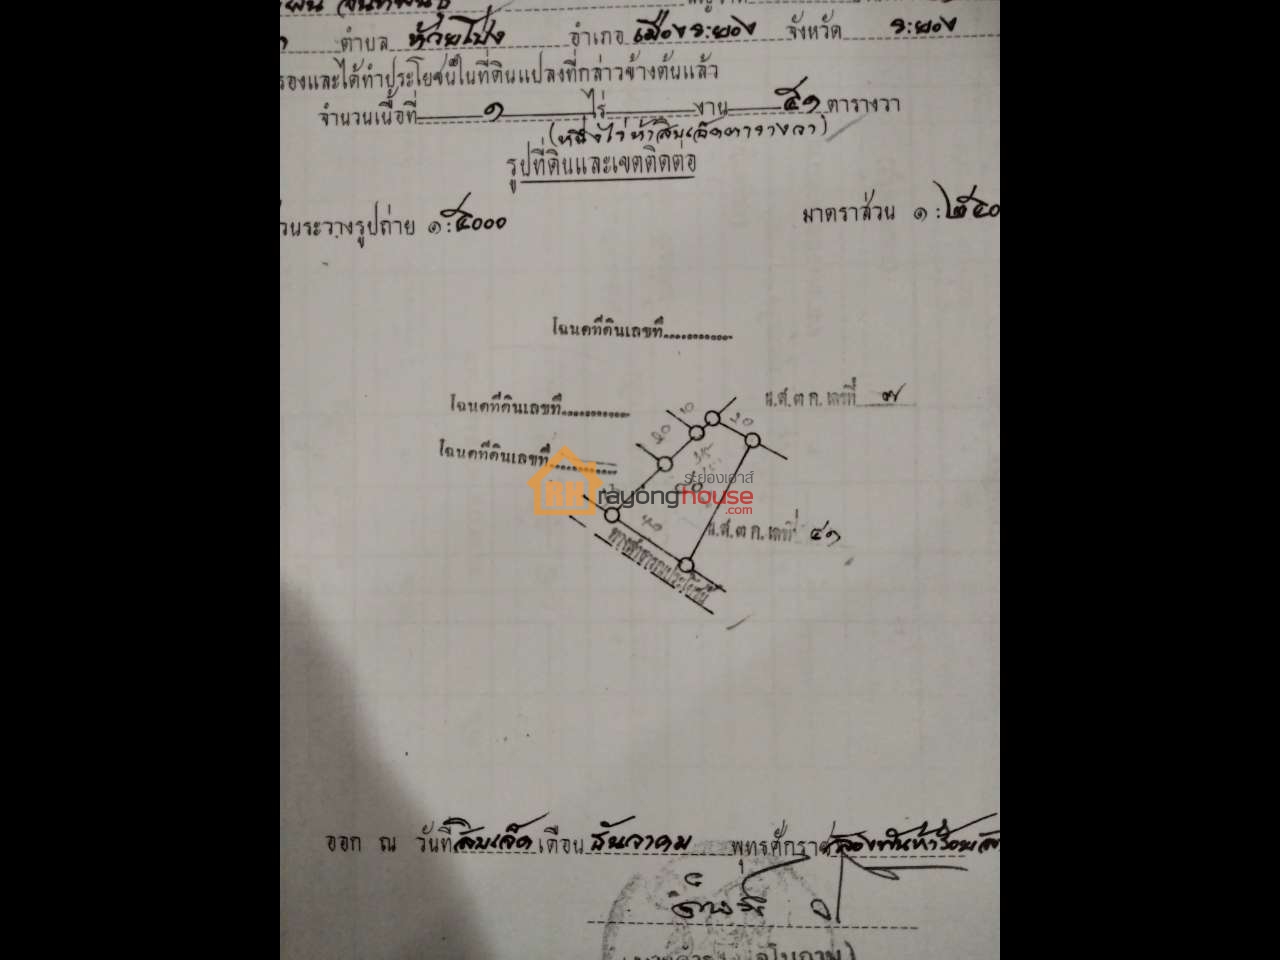 ตำบล ห้วยโป่ง อำเภอ เมืองระยอง จังหวัด ระยอง
รองและได้ทำประโยชน์ในที่ดินแปลงที่กล่าวข้างต้นแล้ว
จำนวนเนื้อที่ ๑ ไร่ งาน ๕๑ ตารางวา
(หนึ่งไร่ห้าสิบเอ็ดตารางวา)
รูปที่ดินและเขตติดต่อ
ส่วนระวางรูปถ่าย ๑:๕๐๐๐ มาตราส่วน ๑:๒๕๐
โฉนดที่ดินเลขที่............
โฉนดที่ดินเลขที่............
น.ส.๓ ก. เลขที่ ๗
โฉนดที่ดินเลขที่............
ระยองเฮาส์
rayonghouse
.com
น.ส.๓ ก. เลขที่ ๔๑
๔๐
ทางสาธารณประโยชน์
ออก ณ วันที่ สิบเจ็ด เดือน ธันวาคม พุทธศักราช สองพันห้าร้อย